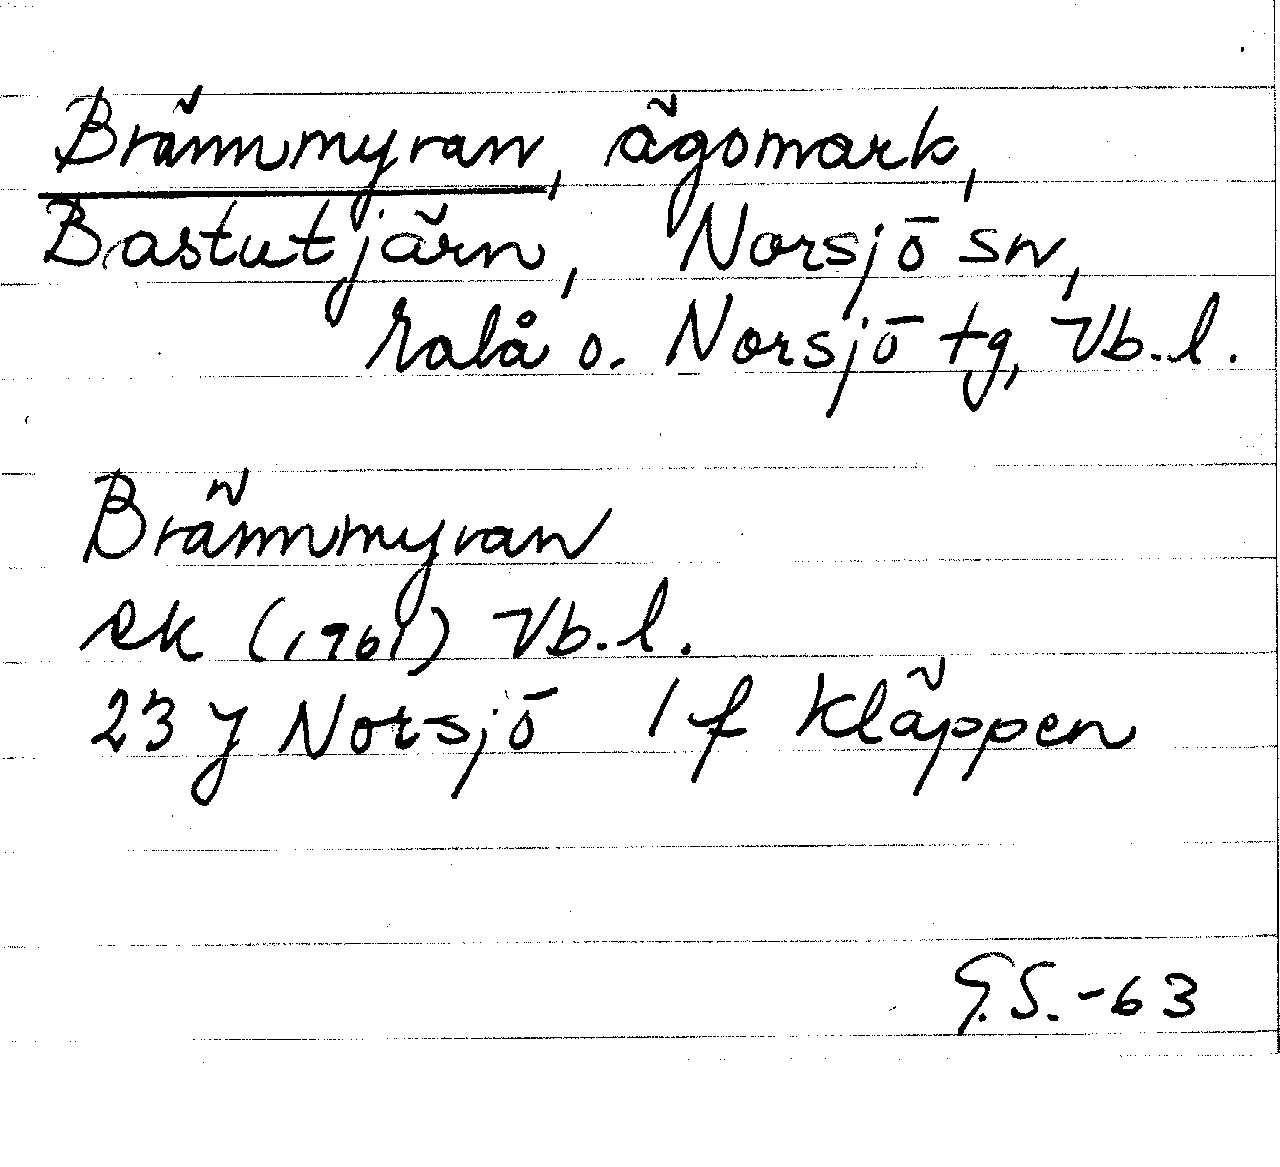 Brännmyran, ägomark,
Bastutjärn, Norsjö sn,
Malå o. Norsjö tg, Vb.l.
Brännmyran
ek (1961) Vb.l.
23 J Norsjö 1 f Kläppen
G.S. -63